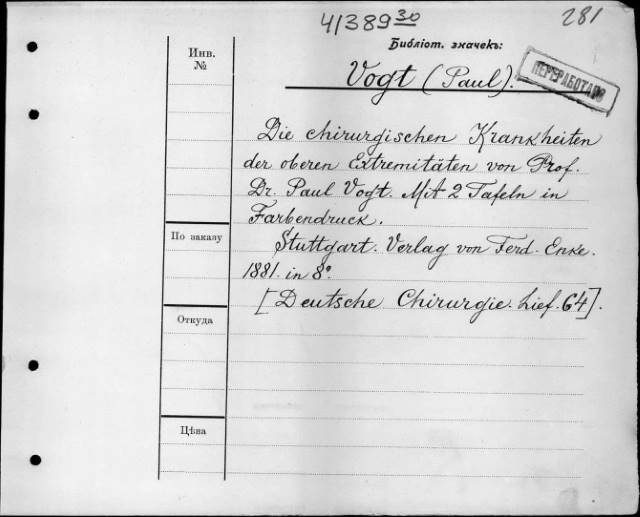 41389 30
281
Библіот. значекъ:
ПЕРЕРАБОТАНО
Инв.
№
Vogt (Paul).
Die chirurgischen Krankheiten
der oberen Extremitäten von Prof.
Dr. Paul Vogt. Mit 2 Tafeln in
Farbendruck.
По заказу
Stuttgart. Verlag von Ferd. Enke.
1881. in 8º
[Deutsche Chirurgie. Lief. 64].
Откуда
Цѣна